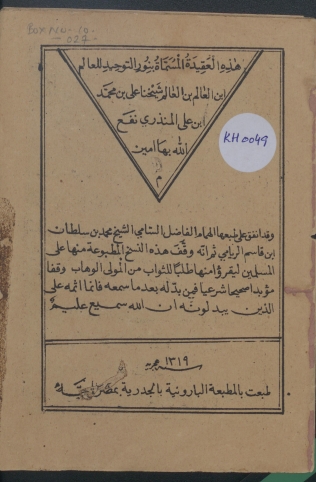 Box No-10-
027
KH0049
هذه العقيدة المسماة بنور التوحيد للعالم
ابن العالم بن العالم شيخنا على بن محمد
ابن على المنذرى نفع
الله بها امين
م
وقد انفق على طبعها الهمام الفاضل السامي الشيخ محمد بن سلطان
ابن قاسم الريامي ثم انه وقف هذه النسخ المطبوعة منها على
المسلمين ليقرؤا منها طلبا للثواب من المولى الوهاب وقفا
مؤبدا صحيحا شرعيا فمن بدله بعد ما سمعه فانما اثمه على
الذين يبدلونه ان الله سميع عليم
سنة ١٣١٩ هجرية
طبعت بالمطبعة البارونية بالجدرية بمصر